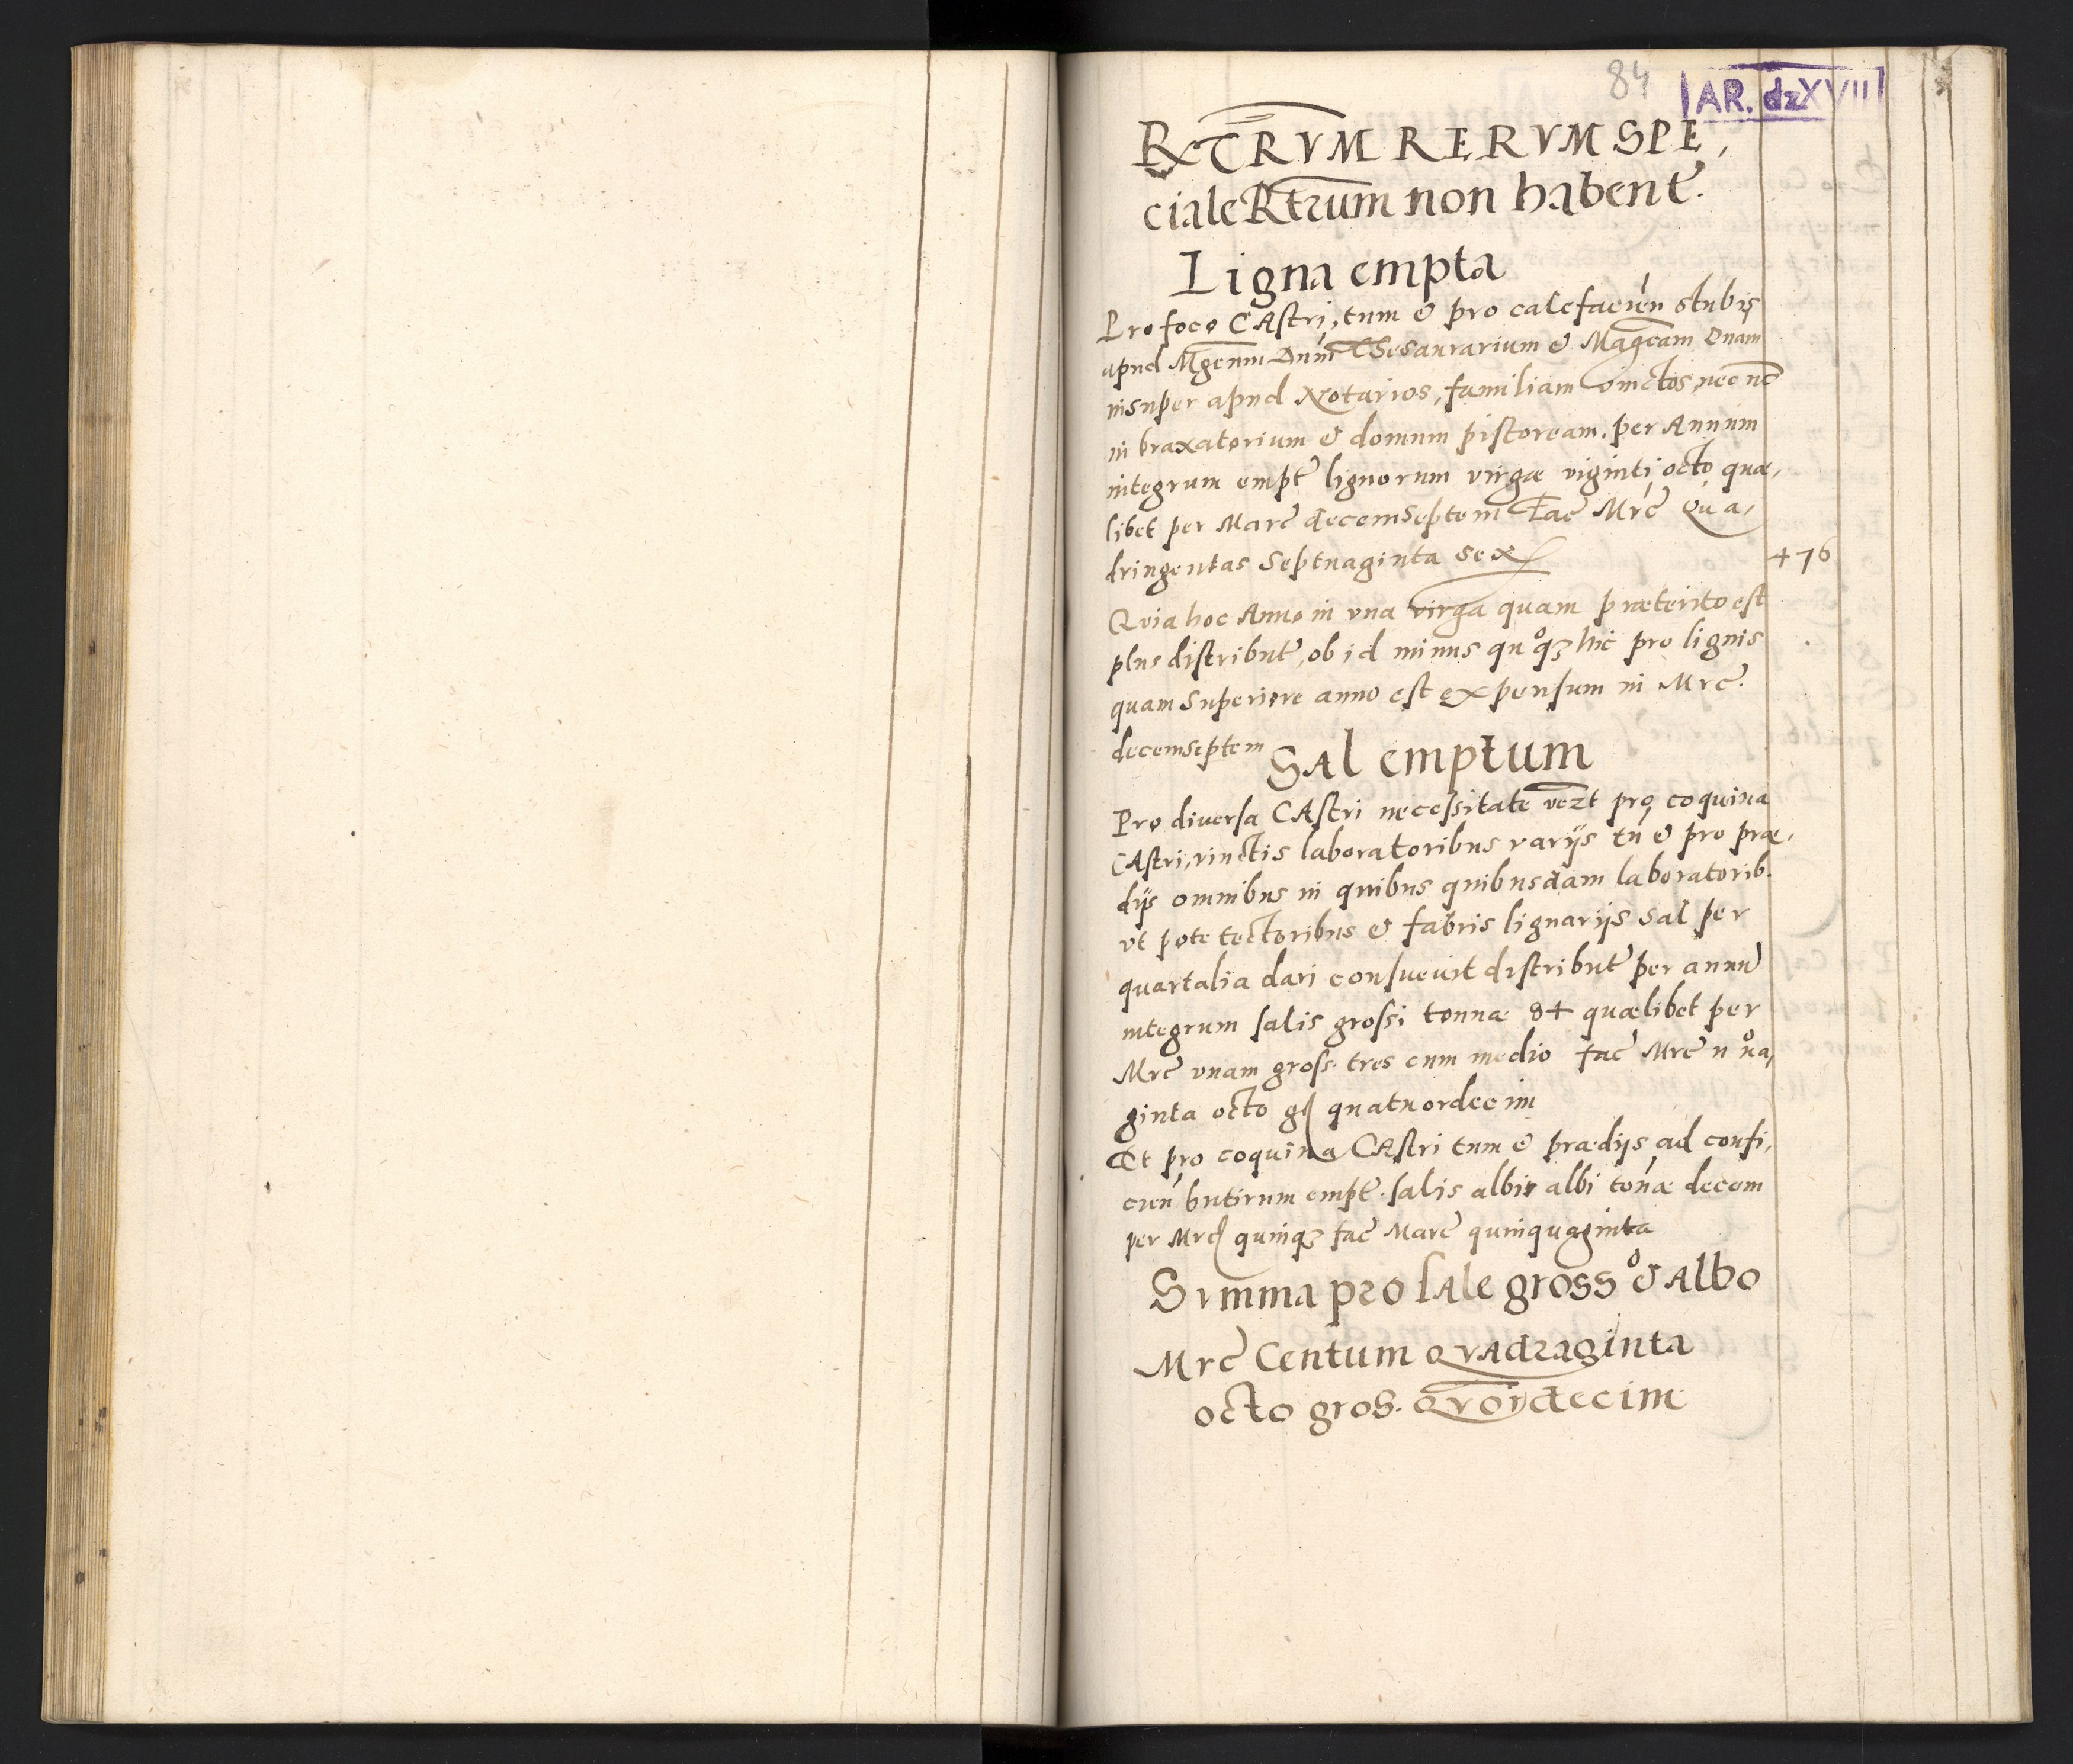 84
AR. dzXVII
RxTRVM RERVM SPE,
ciale Rtrum non habent.
Ligna empta
Pro foco CAstri, tum & pro calefacien stubis
apud Mgcum Dnum Thesaurarium & Magcam Dnam
insuper apud Notarios, familiam vinctos, nec nō
in braxatorium & domum pistoream. per Annum
integrum empt lignorum virgæ viginti octo quæ,
libet per Marc decemseptem fac Mrc Qua,
dringentas Septuaginta sex
476
Qvia hoc Anno in vna virga quam præterito est
plus distribut, ob id minus quoqz hic pro lignis
quam Superiore anno est expensum in Mrc.
decemseptem
SAl emptum
Pro diuersa CAstri necessitate vezt pro coquina
CAstri, vinctis laboratoribus varijs tū & pro præ,
dijs omnibus in quibus quibusdam laboratorib.
vt pote tectoribus & fabris lignarijs sal per
quartalia dari consueuit distribut per annū
integrum salis grossi tonnæ 84 quælibet per
Mrc vnam gross. tres cum medio fac Mrc nona,
ginta octo g quatuordecim
Et pro coquina CAstri tum & prædijs ad confi,
cien butirum empt. salis albi albi tonnæ decem
per Mrc quinqz fac Marc quinquaginta
Svmma pro sAle grosso & Albo
Mrc Centum QvAdraginta
octo gros. Qvordecim